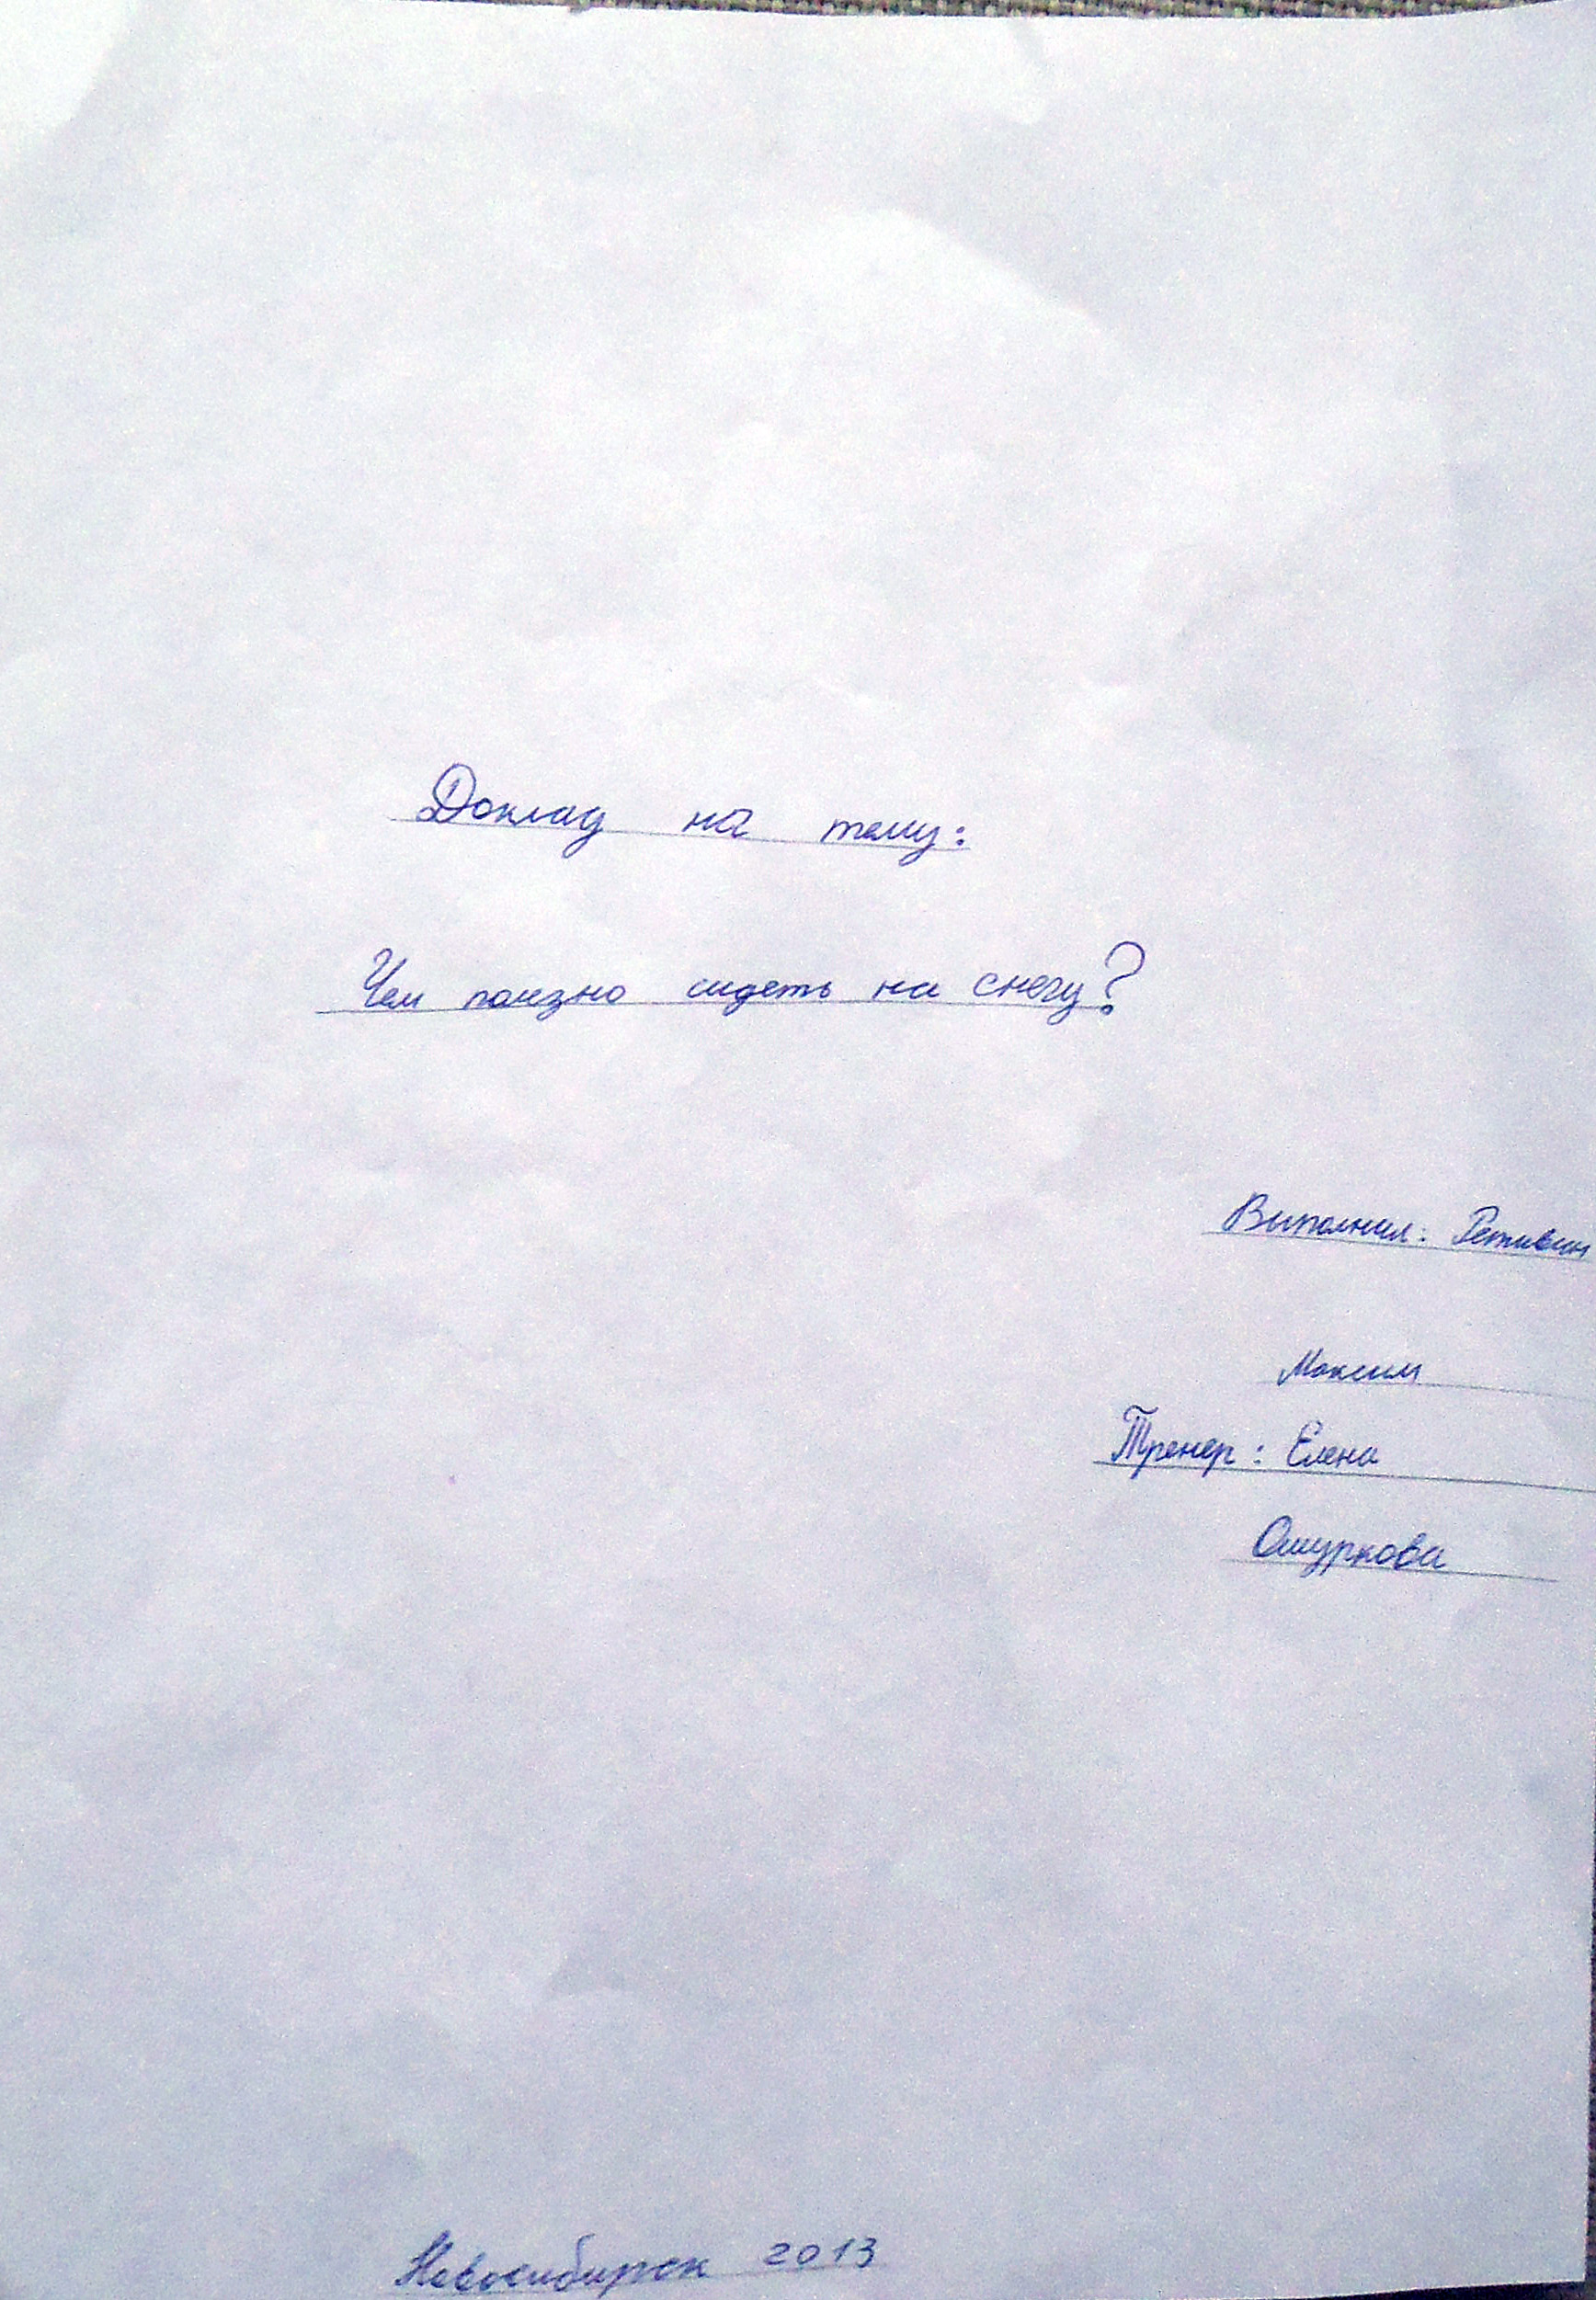 Доклад на тему:
Чем полезно сидеть на снегу?
Выполнил: Ретивин
Максим
Тренер: Елена
Ошуркова
Новосибирск 2013